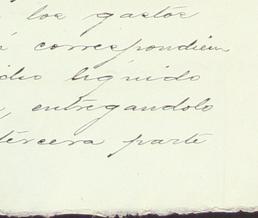 los gastos
correspondien
líquido
entregandolo
tercera parte